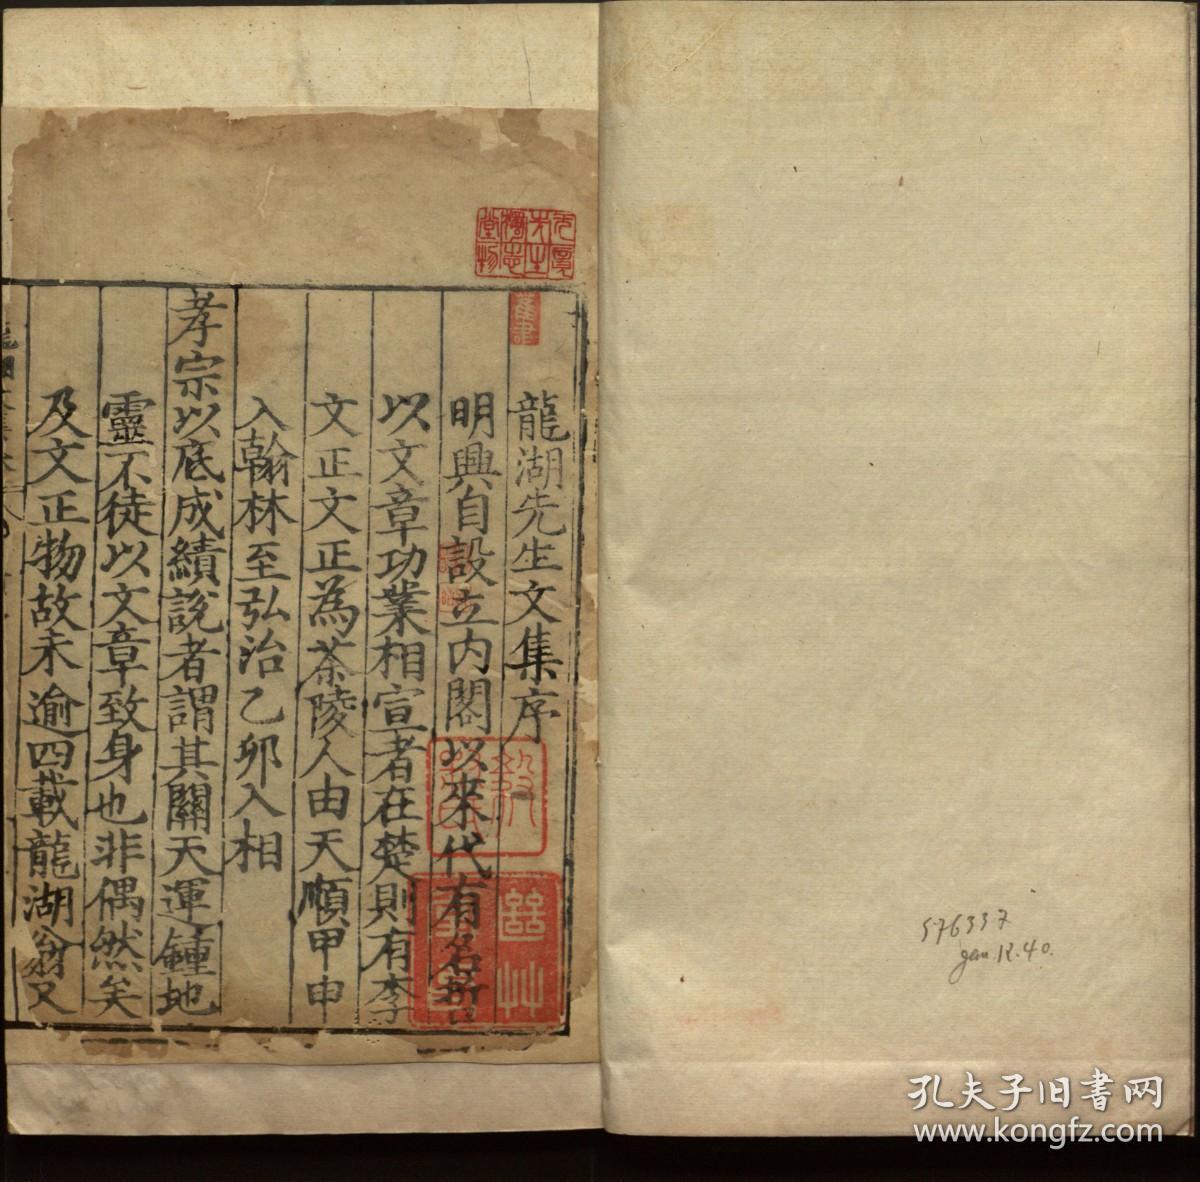 龍湖先生文集序
明興自設立内閣以來代有名哲
以文章功業相宣者在楚則有李
文正文正為茶陵人由天順甲申
入翰林至弘治乙卯入相
孝宗以底成績說者謂其關天運鍾地
靈不徒以文章致身也非偶然矣
及文正物故未逾四載龍湖翁又
舊書
576337
Jan. 12. 40.
孔夫子旧书网
www.kongfz.com